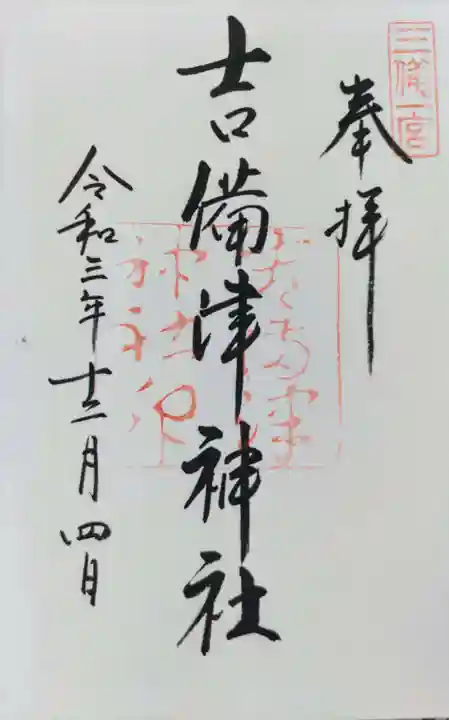 三備一宮
奉拝
吉備津神社
吉備津
神社印
令和三年十二月四日